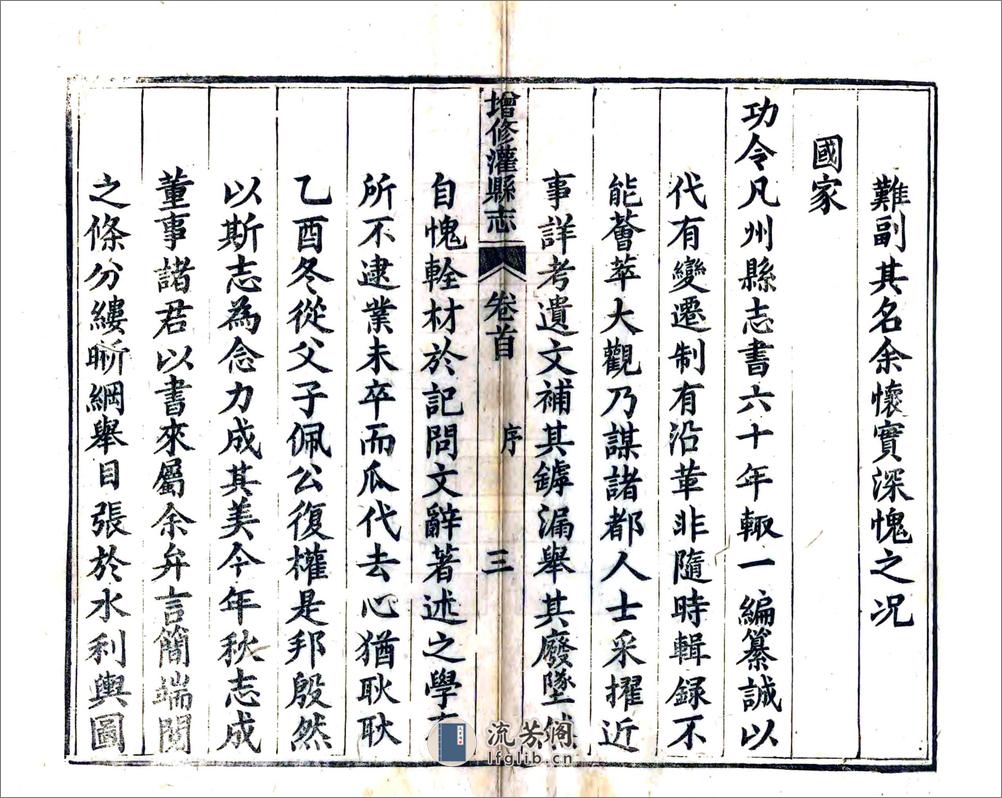 難副其名余懷實深愧之况
國家
功令凡州縣志書六十年輙一編纂誠以
代有變遷制有沿革非隨時輯録不
能薈萃大觀乃謀諸都人士采擢近
事詳考遺文補其鏬漏舉其廢墜
增修灌縣志 卷首 序 三
自愧輇材於記問文辭著述之學
所不逮業未卒而瓜代去心猶耿耿
乙酉冬從父子佩公復權是邦殷然
以斯志為念力成其美今年秋志成
董事諸君以書來屬余弁言簡端閱
之條分縷晰綱舉目張於水利輿圖
流芳阁
lfglib.cn